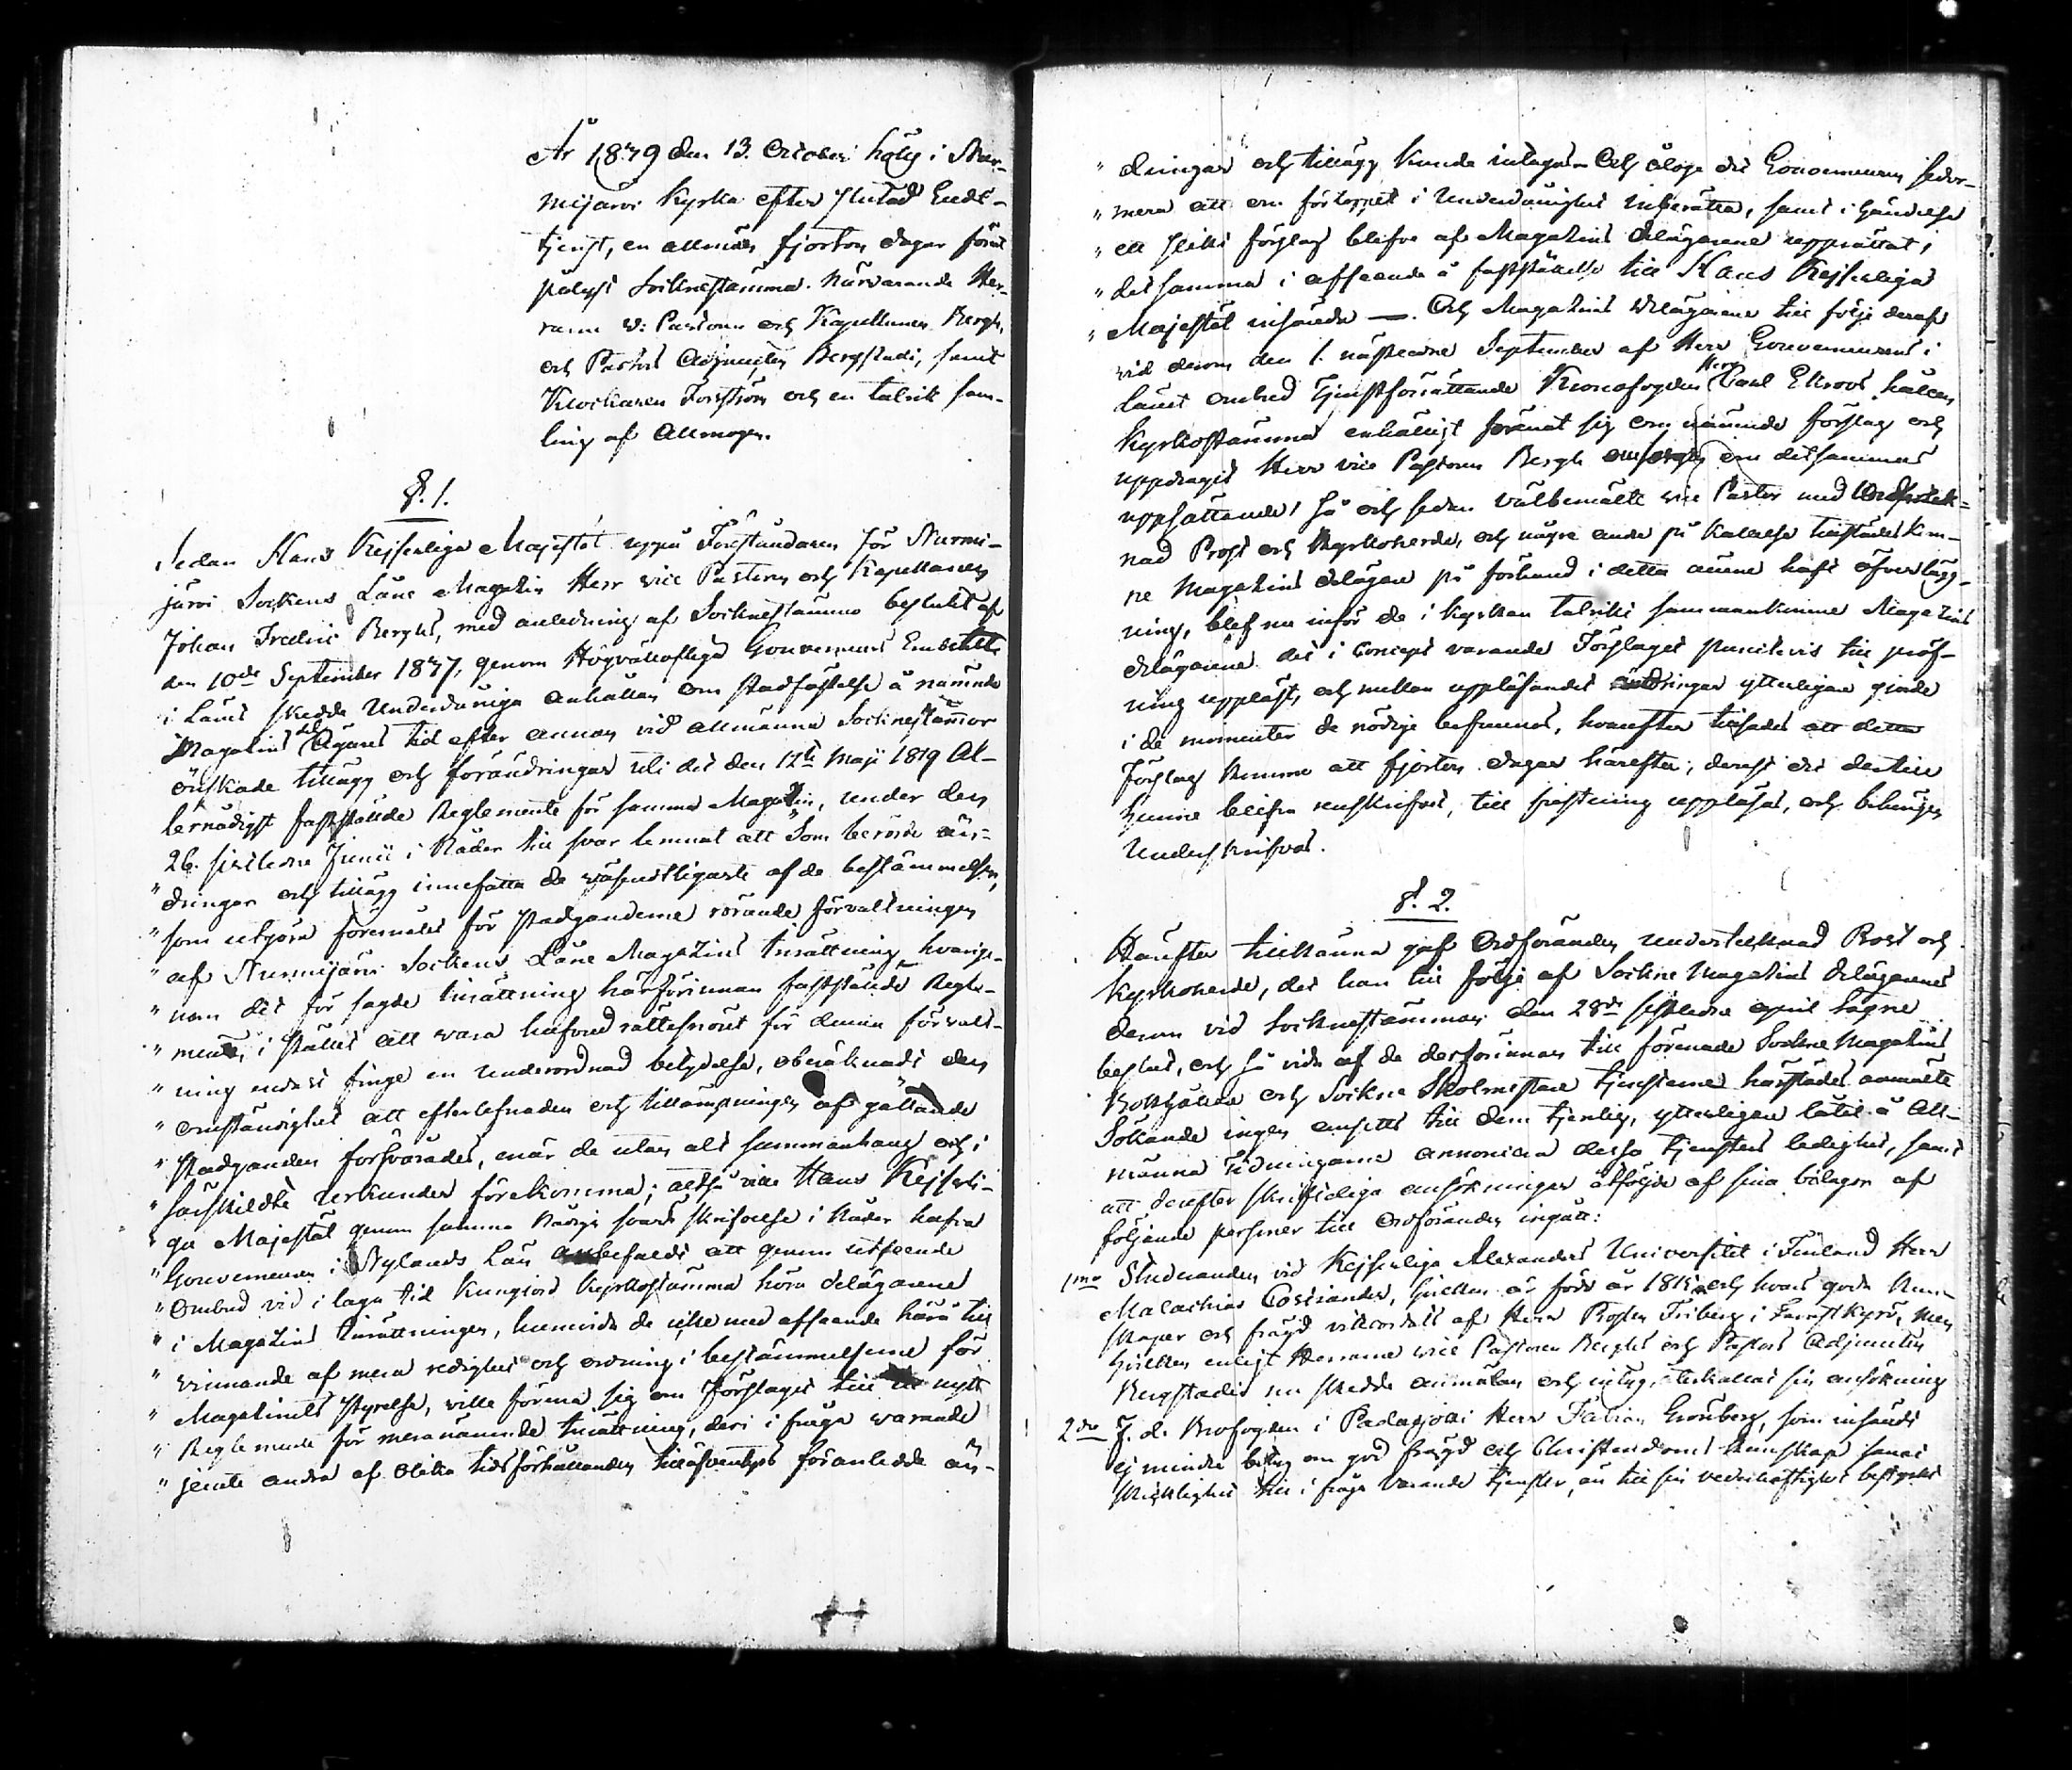 År 1849 den 13. October hölls i Nur-
mijärvi Kyrka efter slutad Guds-
tjenst, en allmän fjorton dagar förut
pålyst Socknestämma. Närvarande Her-
rarne v: Pastorn och Kapellanen Bergh,
och Pastors Adjuncten Bergstadi, samt
Klockaren Forsström och en talrik sam-
ling af Allmogen.
§. 1.
Sedan Hans Kejserliga Majestät uppå Föreståndaren för Nurmi-
järvi Sockens Låne Magazin Herr vice Pastorn och Kapellanen
Johan Fredric Berghs, med anledning af Socknestämmo beslutet af
den 10de September 1847, genom Högvälloflige Gouverneurs Embetet
i Länet skedde Underdåniga anhållan om stadfästelse å nämnde
Magazins Delägares tid efter annan vid allmänna Socknestämmor
önskade tillägg och förändringar uti det den 12te Maji 1819 Al-
lernådigst fastställde Reglemente för samma Magazin, under den
26. sistledne Junii i Nåder till svar lemnat att "Som berörde än-
" dringar och tillägg innefatta de väsendtligaste af de bestämmelser,
" som utgöra föremålet för stadganderne rörande förvaltningen
" af Nurmijärvi Sockens Låne Magazins Inrättning, hvarige-
" nom det för sagde Inrättning härförinnan fastställde Regle-
" mente, i stället att vara hufvud rättesnöret för denna förvalt-
" ning endast finge en underordnad betydelse, oberäknadt den
" omständighet att efterlefnaden och tillämpningen af gällande
" stadganden försvårades, når de utan alt sammanhang och i
" särskildte Urkunder förekomma; altså ville Hans Kejserli-
" ga Majestät genom samma Nådiga svars skrifvelse i Nåder hafva
" Gouverneuren i Nylands Län anbefaldt att genom utseende
" Ombud vid i laga tid kungjord Kyrkostämma höra delägarene
" i Magazins Inrättningen, huruvida de icke med afseende härå till
" vinnande af mera redighet och ordning i bestämmelserne för
" Magazinets styrelse, ville förena sig om Förslaget till ett nytt
" Reglemente för meranämnde Inrättning, deri i fråga warande
" jemte andra af olika tidsförhållanden tilläfventyrs föranledde än-
" dringar och tillägg kunde intagas – Och ålåge det Gouverneuren seder-
" mera att om förloppet i Underdånighet inberätta, samt i händelse
" ett slikt förslag blifve af Magazins delägarene upprättat,
" det samma i afseende å fastställelse till Hans Kejserliga
" Majestät insända —. Och Magazins delägarene till följe deraf
vid derom den 1. nästledne September af Herr Gouverneurens i
Länet ombud Tjenstförrättande Kronofogden Herr Carl Ekroos hållen
Kyrkostämma enhälligt förenat sig om nämnde förslag och
uppdragit Herr vice Pastorn Bergh om detsammas
uppsättande; Så och sedan välbemälte vice Pastor med Underteck-
nad Prost och Kyrkoherde, och några andra på kallelse tillstädes kom-
ne Magazins delägare på förhand i detta ämne haft öfverlägg-
ning, blef nu inför de i kyrkan talrikt sammankomne Magazins
delägarene det i Concept varande Förslaget punctevis till pröf-
ning uppläst, och mellan uppläsandet ändringar ytterligare gjorde
i de momenter de nödige befunnos, hvarefter tillsades att detta
Förslag komme att fjorton dagar härefter, derest det dertill
hunne blifva renskrifvet, till justering uppläsas, och behörigen
Underskrifvas.
§. 2.
Härefter tillkänna gaf Ordföranden undertecknad Prost och
Kyrkoherde, det han till följe af Sockne Magazins delägarenes
derom vid Socknestämman den 28de sistledne april tagne
beslut, och så vida af de dessförinnan till förenade Sockne Magazins
Bokhållare och Sockne Skolmästare tjensterne härstädes anmälte
Sökande ingen ansetts till dem tjenlig, ytterligare låtit i All-
männa Tidningarne annoncera dessa tjensters ledighet, samt
att derefter skriftliga ansökningar åtföljde af sina bilagor af
följande personer till Ordföranden ingått:
1mo Studeranden vid Kejserliga Alexanders Universitet i Finland Herr
Malachias Costiander, hvilken är född år 1815 och hvars goda Kun-
skaper och frägd vitsordats af Herr Prosten Friberg i Tavastkyro, men
hvilken enligt Herrarne vice Pastoren Berghs och Pastors Adjuncten
Bergstadis nu skedda anmälan och intyg, återkallat sin ansökning
2do F. d. Brofogden i Padasjoki Herr Fabian Grönberg, som insändt
ej mindre betyg om god frägd och Christendoms kunskap samt
skicklighet till i fråga varande tjenster, än till sin vederhäftighet bestyrkt